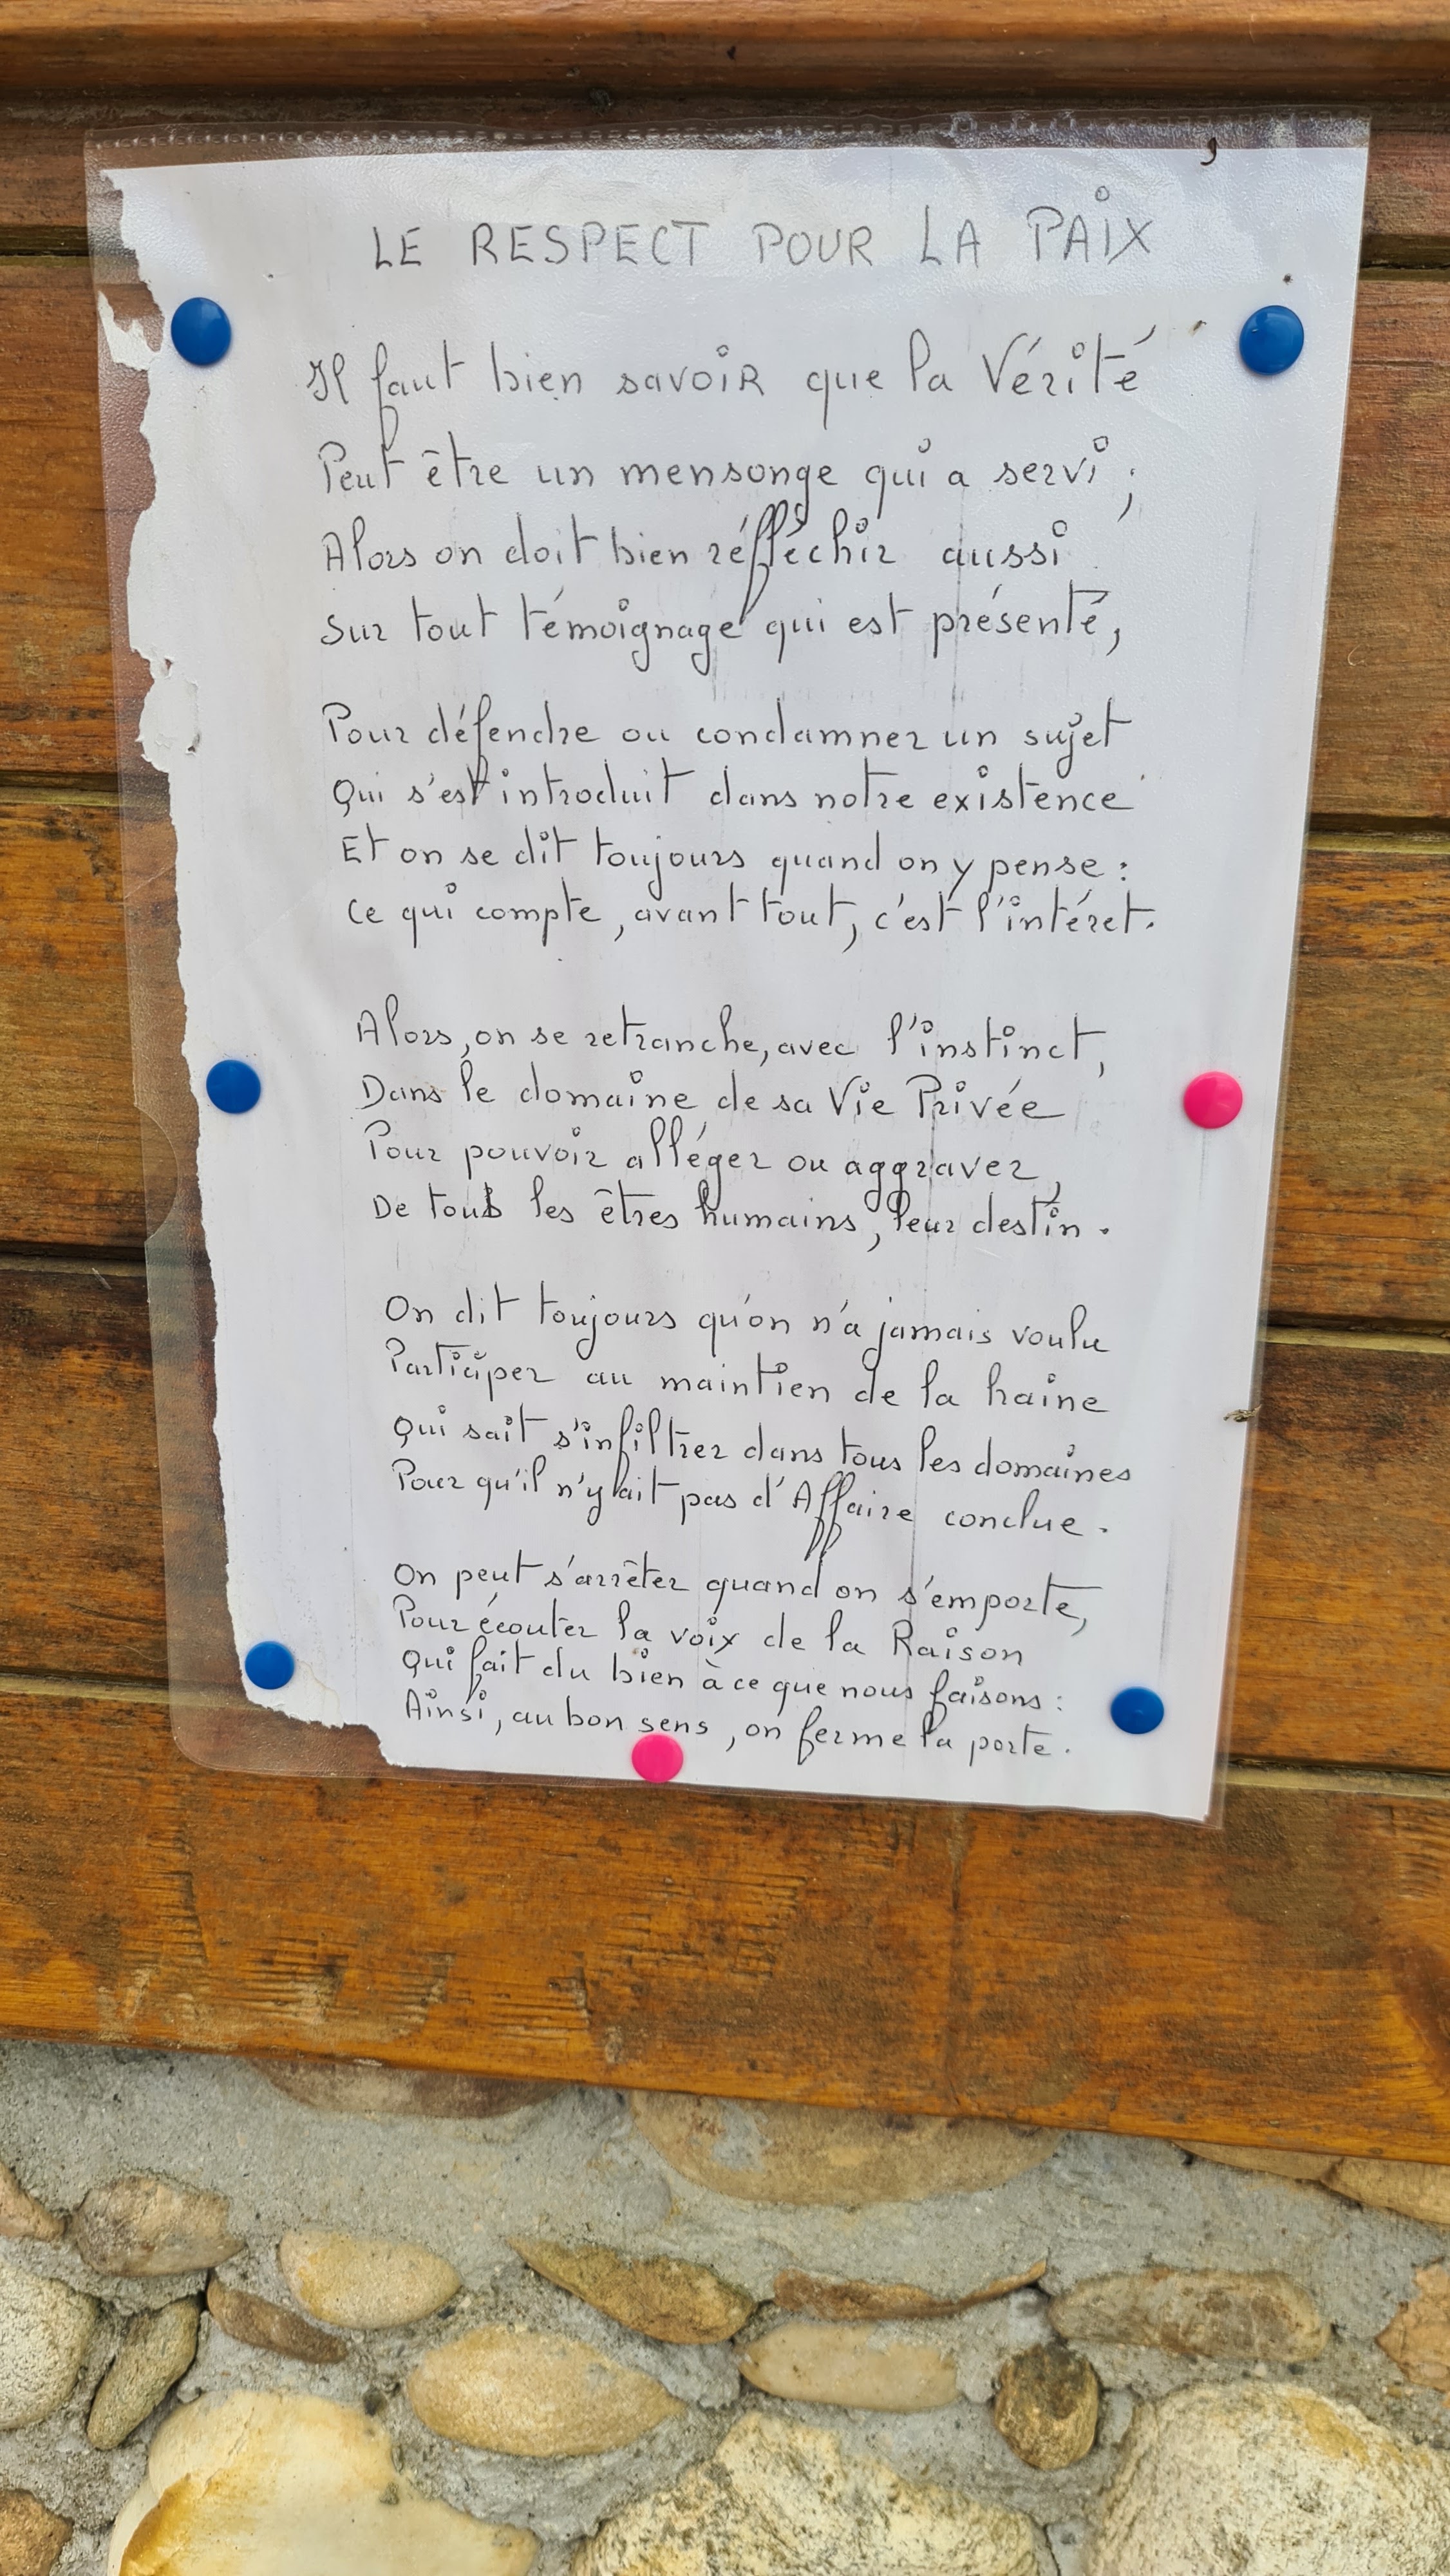 LE RESPECT POUR LA PAIX
Il faut bien savoir que la Vérité
Peut être un mensonge qui a servi ;
Alors on doit bien réfléchir aussi
Sur tout témoignage qui est présenté,
Pour défendre ou condamner un sujet
Qui s'est introduit dans notre existence
Et on se dit toujours quand on y pense :
Ce qui compte, avant tout, c'est l'intéret.
Alors, on se retranche, avec l'instinct,
Dans le domaine de sa Vie Privée
Pour pouvoir alléger ou aggraver,
De tous les êtres humains, leur destin.
On dit toujours qu'on n'a jamais voulu
Participer au maintien de la haine
Qui sait s'infiltrer dans tous les domaines
Pour qu'il n'y ait pas d'Affaire conclue.
On peut s'arrêter quand on s'emporte,
Pour écouter la voix de la Raison
Qui fait du bien à ce que nous faisons :
Ainsi, au bon sens, on ferme la porte.